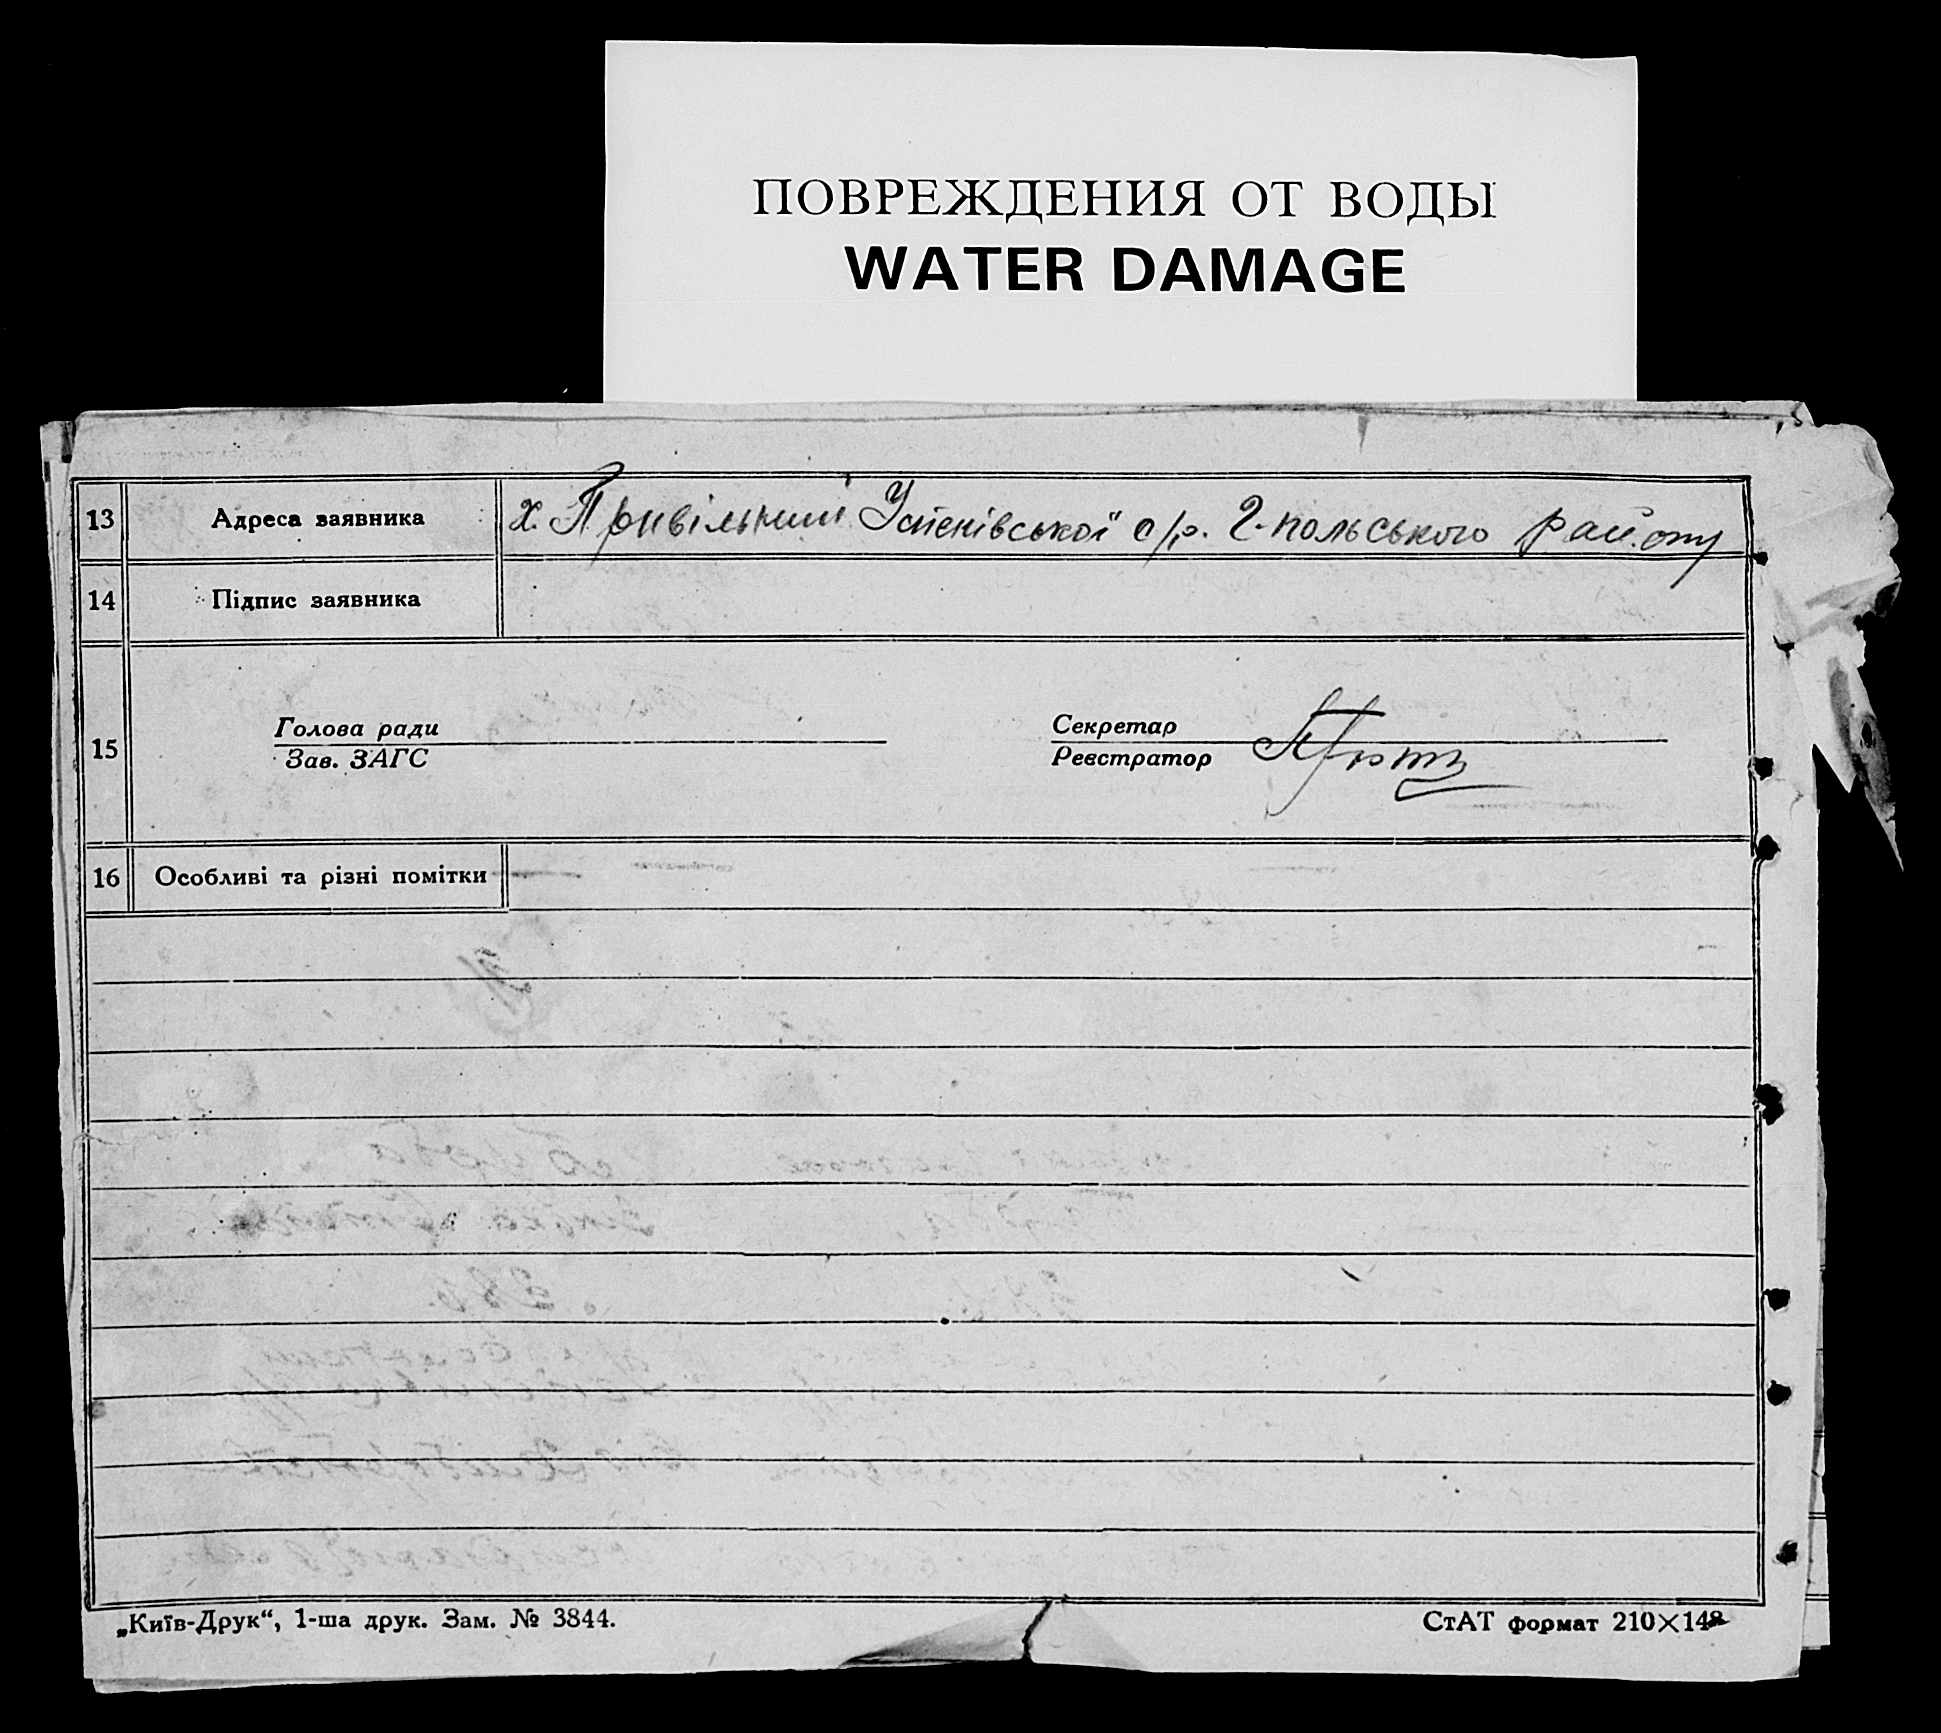 ПОВРЕЖДЕНИЯ ОТ ВОДЫ
WATER DAMAGE
13 Адреса заявника х. Привільний Успенівської с/р. Г-польського району
14 Підпис заявника
15 Голова ради Секретар
Зав. ЗАГС Реєстратор
16 Особливі та різні помітки
„Київ-Друк“, 1-ша друк. Зам. № 3844. СтАТ формат 210×148